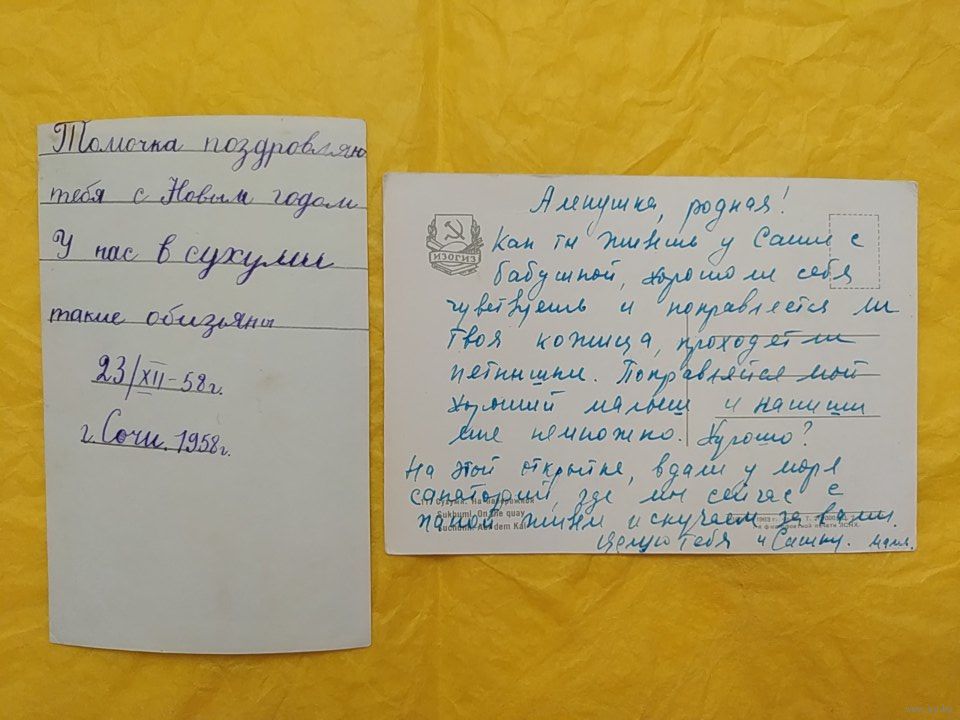 Томочка поздровляю
тебя с Новым годом
У нас в сухуми
такие обизьяны
23/XII-58г.
г. Сочи. 1958г.
Аленушка, родная!
ИЗОГИЗ
Как ты живешь у Саши с
бабушкой, хорошо ли себя
чувствуешь и поправляется ли
твоя кожица, проходят ли
пятнышки. Поправляйся мой
хороший малыш и напиши
мне немножко. Хорошо?
На этой открытке, вдали у моря
санаторий, где мы сейчас с
папой живем и скучаем за вами.
Целую тебя и Сашку. мама.
Сухуми. На набережной
Sukhumi. On the quay
Suchumi. Auf dem Kai